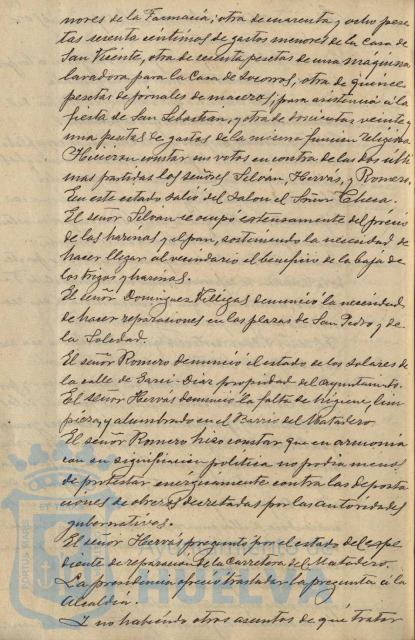 nores de la Farmacia; otra de cuarenta y ocho pese
tas sesenta centimos de gastos menores de la Casa de
San Vicente, otra de sesenta pesetas de una maquina
lavadora para la Casa de Socorros; otra de quince
pesetas de jornales de maceros, para asistencia á la
fiesta de San Sebastian, y otra de doscientas veinte y
una pesetas de gastos de la misma funcion religiosa.
Hicieron constar sus votos en contra de las dos ulti
mas partidas los señores Silván, Hervás, y Romero.
En este estado salió del Salon el Señor Chesa.
El señor Silvan se ocupó extensamente del precio
de las harinas y el pan, sosteniendo la necesidad de
hacer llegar al vecindario el beneficio de la baja de
los trigos y harinas.
El señor Dominguez Villegas denunció la necesidad,
de hacer reparaciones en las plazas de San Pedro y de
la Soledad.
El señor Romero denunció el estado de los solares de
la calle de Garci-Diaz propiedad del ayuntamto.
El señor Hervás denunció la falta de higiene, lim
pieza, y alumbrado en el Barrio del Matadero.
El señor Romero hizo constar que en armonia
con su significacion politica no podia menos
de protestar energicamente contra las deporta
ciones de obreros decretadas por las autoridades
gubernativas.
El señor Hervás preguntó por el estado del espe
diente de reparacion de la Carretera del Matadero.
La presidencia ofreció trasladar la pregunta á la
Alcaldia.
Y no habiendo otros asuntos de que tratar
PORTUS MARIS
Ayuntamiento de
HUELVA